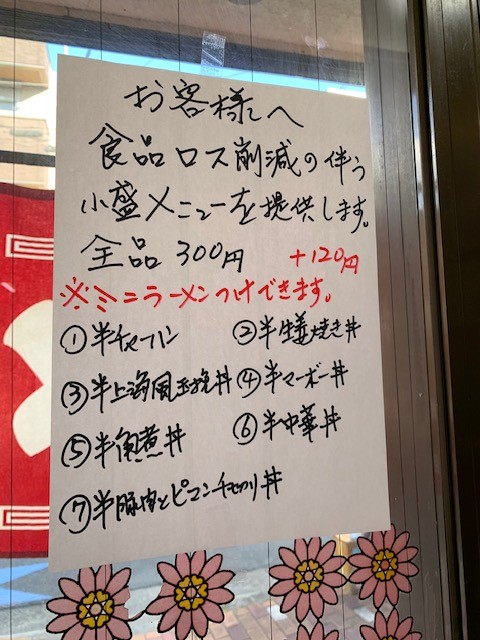 お客様へ
食品ロス削減の伴う
小盛メニューを提供します。
全品 300円 +120円
※ミニラーメンつけできます。
①半チャーハン ②半生姜焼き丼
③半上海風玉挽丼 ④半マーボー丼
⑤半角煮丼 ⑥半中華丼
⑦半豚肉とピーマン千切り丼